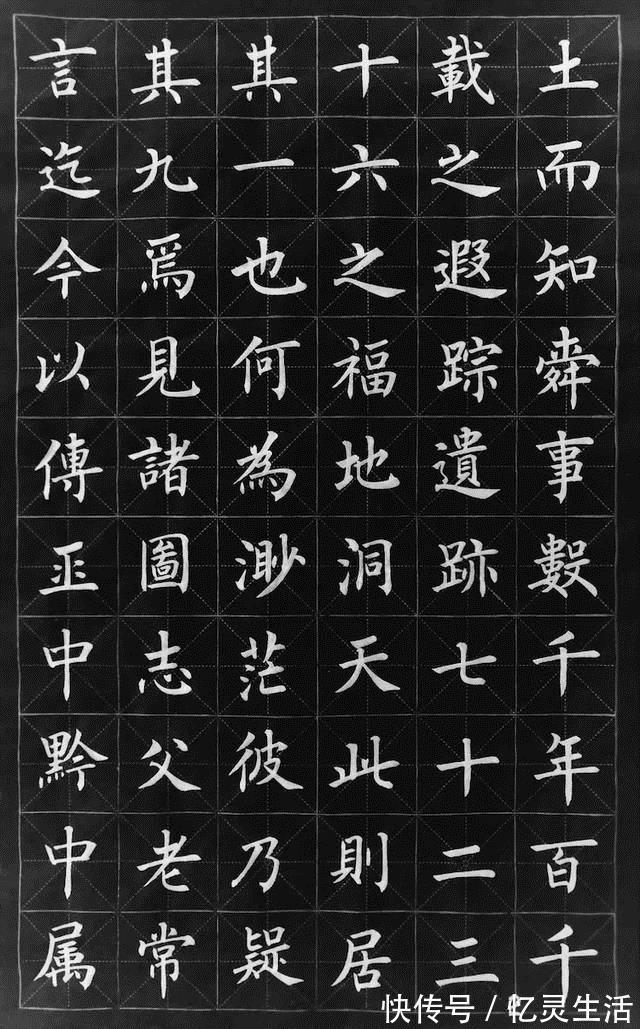 土而知舜事數千年百千
載之遐踪遺跡七十二三
十六之福地洞天此則居
其一也何為渺茫彼乃疑
其九焉見諸圖志父老常
言迄今以傳巫中黔中属
快传号 / 忆灵生活